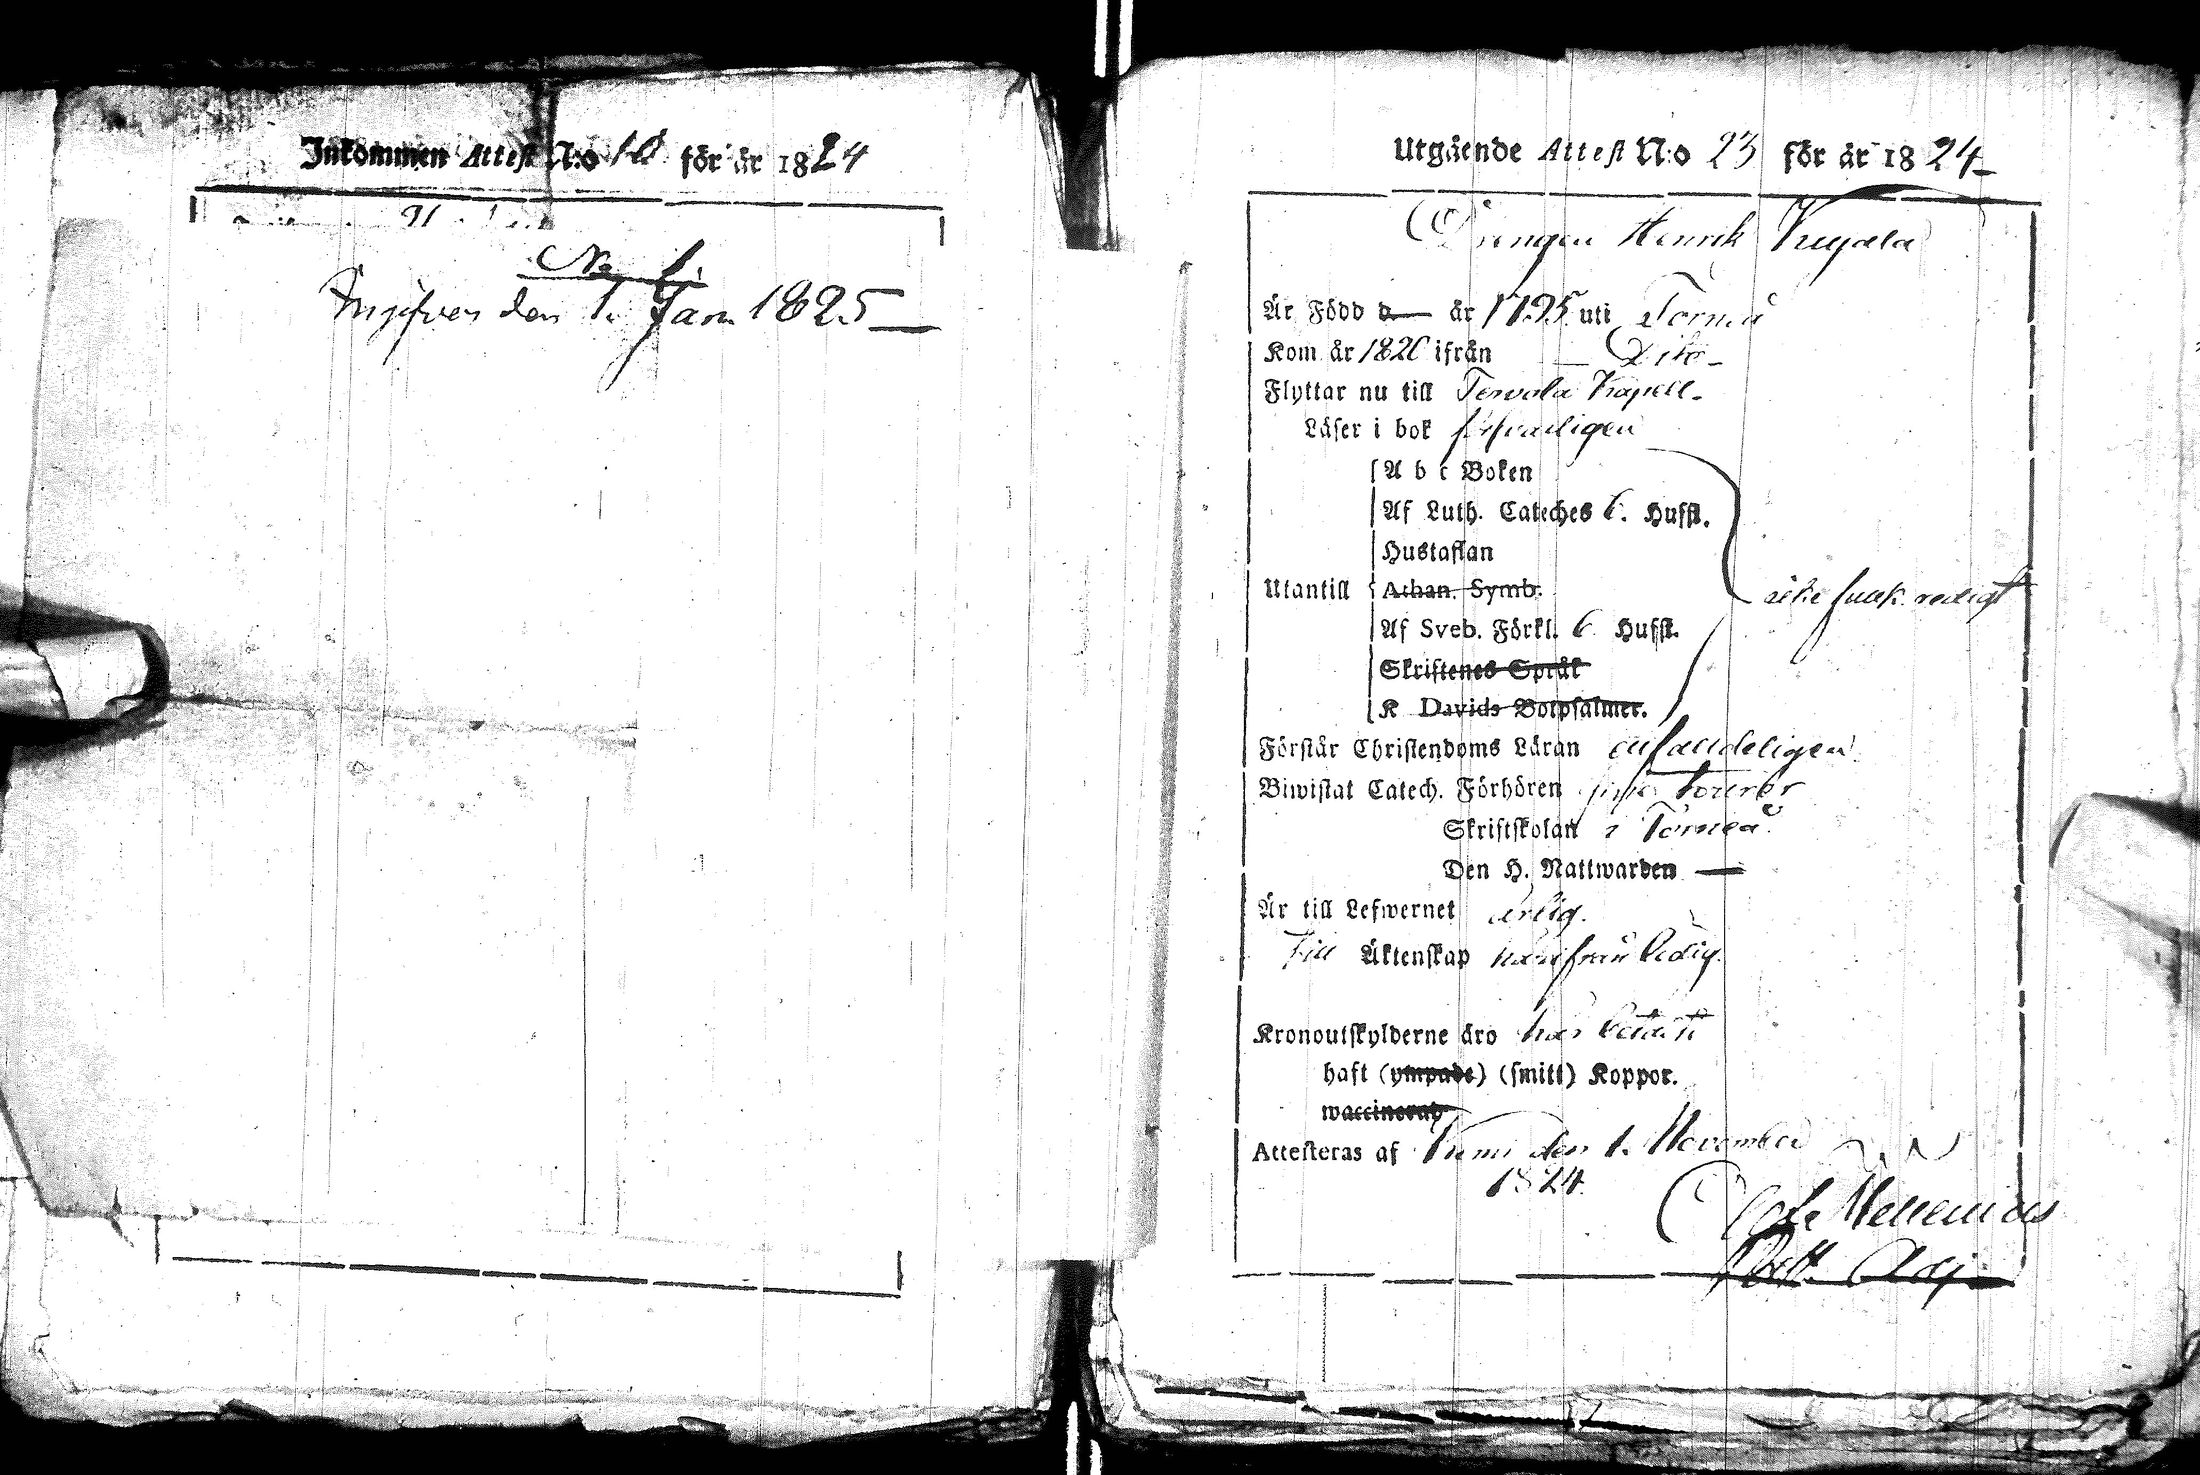 Inkommen Attest N:o 10 för år 1824
No 1.
Ingifven den 1. Jan. 1825
Utgående Attest N:o 23 för år 1824
Drengen Henrik
Är Född d år 1795 uti Torneå
Kom år 1820 ifrån Dito
Flyttar nu till Tervola Kapell.
Läser i bok försvarligen
A b c Boken
Af Luth. Cateches 6. Hufst.
Hustaflan
Utantill Athan. Symb.
Af Sveb. Förkl. 6 Hufst.
Skriftenes Språk
K Davids Botpsalmer.
icke redigt
Förstår Christendoms Läran enfaldeligen
Biwistat Catech. Förhören
Skriftskolan i Torneå.
Den H. Nattwarden —
Är till Lefwernet ärlig.
Till Äktenskap härifrån ledig.
Kronoutskylderne äro här betalt
haft (ympade) (smitt) Koppor.
waccinerad
Attesteras af Kemi den 1. November
1824.
Adj.